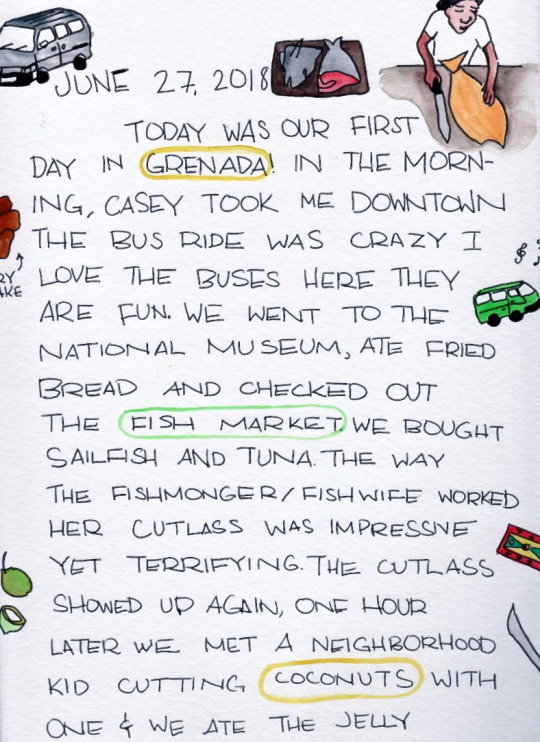 JUNE 27, 2018
TODAY WAS OUR FIRST
DAY IN GRENADA! IN THE MORN-
ING, CASEY TOOK ME DOWNTOWN
THE BUS RIDE WAS CRAZY I
LOVE THE BUSES HERE THEY
ARE FUN. WE WENT TO THE
NATIONAL MUSEUM, ATE FRIED
BREAD AND CHECKED OUT
THE FISH MARKET. WE BOUGHT
SAILFISH AND TUNA. THE WAY
THE FISHMONGER/FISHWIFE WORKED
HER CUTLASS WAS IMPRESSIVE
YET TERRIFYING. THE CUTLASS
SHOWED UP AGAIN, ONE HOUR
LATER WE MET A NEIGHBORHOOD
KID CUTTING COCONUTS WITH
ONE & WE ATE THE JELLY